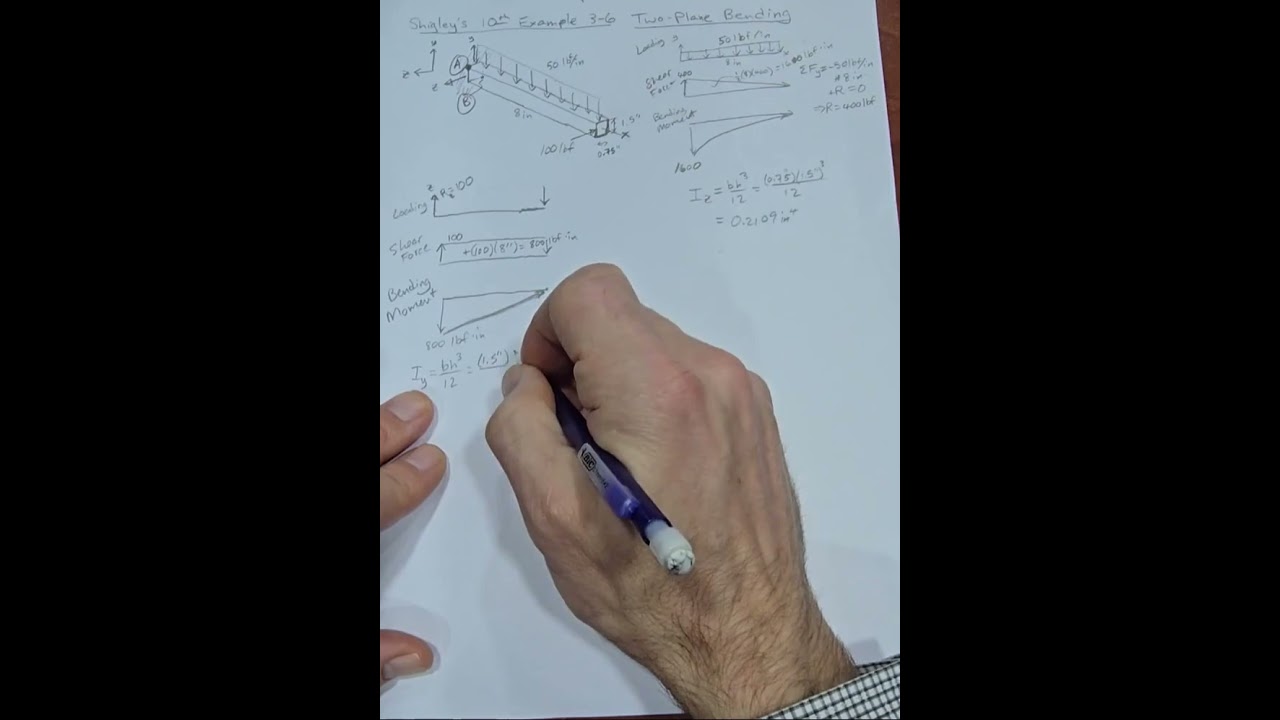 Shigley's 10th Example 3-6 Two-Plane Bending
y
z
A
B
50 lbf/in
8 in
1.5"
x
100 lbf
0.75"
Loading
50 lbf/in
8 in
Shear
Force
400
½(8)(400) = 1600 lbf·in
Bending
Moment
1600
ΣFy = -50 lbf/in
* 8 in
+R = 0
⇒ R = 400 lbf
Iz = bh³/12 = (0.75)(1.5")³/12
= 0.2109 in⁴
z
Loading
Rz=100
Shear
Force
100
+(100)(8") = 800 lbf·in
Bending
Moment
800 lbf·in
Iy = bh³/12 = (1.5")
BIC